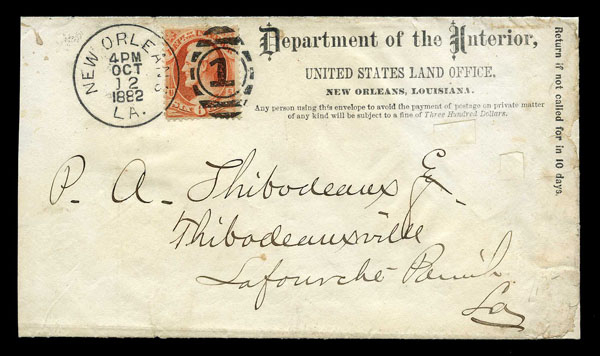 NEW ORLEANS
4PM
OCT
12
1882
LA.
1
Department of the Interior,
UNITED STATES LAND OFFICE,
NEW ORLEANS, LOUISIANA.
Any person using this envelope to avoid the payment of postage on private matter
of any kind will be subject to a fine of Three Hundred Dollars.
Return if not called for in 10 days.
P. A. Thibodeaux Esq.
Thibodeauxville
Lafourche Parish
La